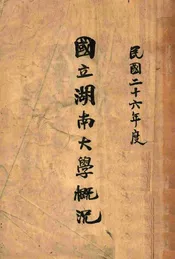 民國二十六年度
國立湖南大學概況